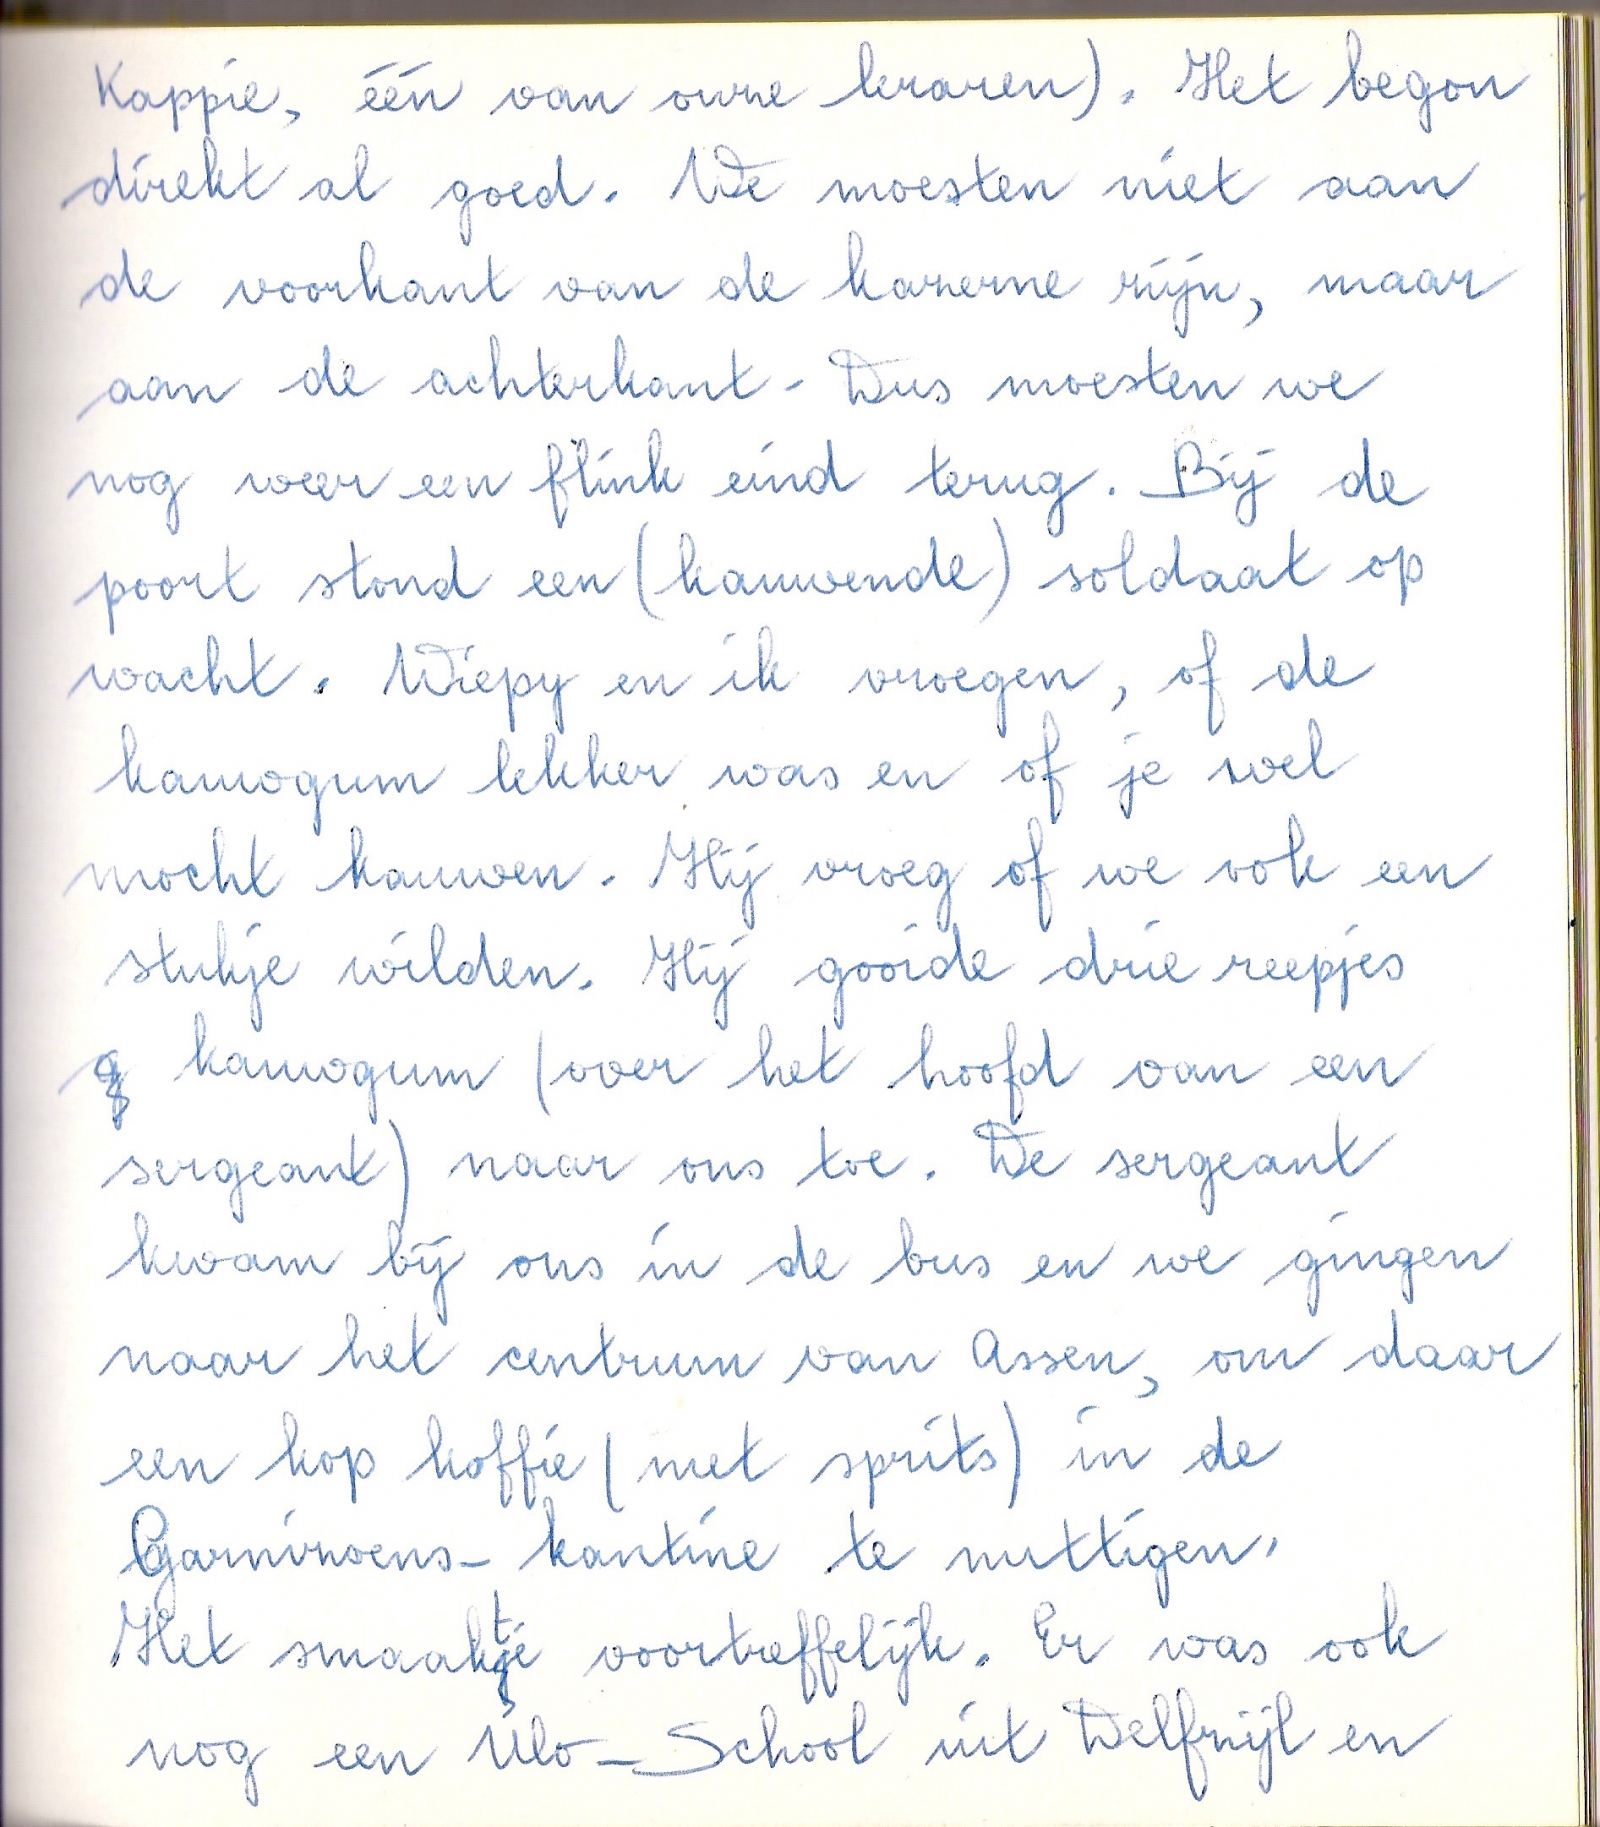 Kappie, één van onze leraren). Het begon
direkt al goed. We moesten niet aan
de voorkant van de kazerne zijn, maar
aan de achterkant. Dus moesten we
nog weer een flink eind terug. Bij de
poort stond een (kauwende) soldaat op
wacht. Wiepy en ik vroegen, of de
kauwgum lekker was en of je wel
mocht kauwen. Hij vroeg of we ook een
stukje wilden. Hij gooide drie reepjes
kauwgum (over het hoofd van een
sergeant) naar ons toe. De sergeant
kwam bij ons in de bus en we gingen
naar het centrum van Assen, om daar
een kop koffie (met sprits) in de
Garnizoens-kantine te nuttigen.
Het smaakte voortreffelijk. Er was ook
nog een Ulo-School uit Delfzijl en